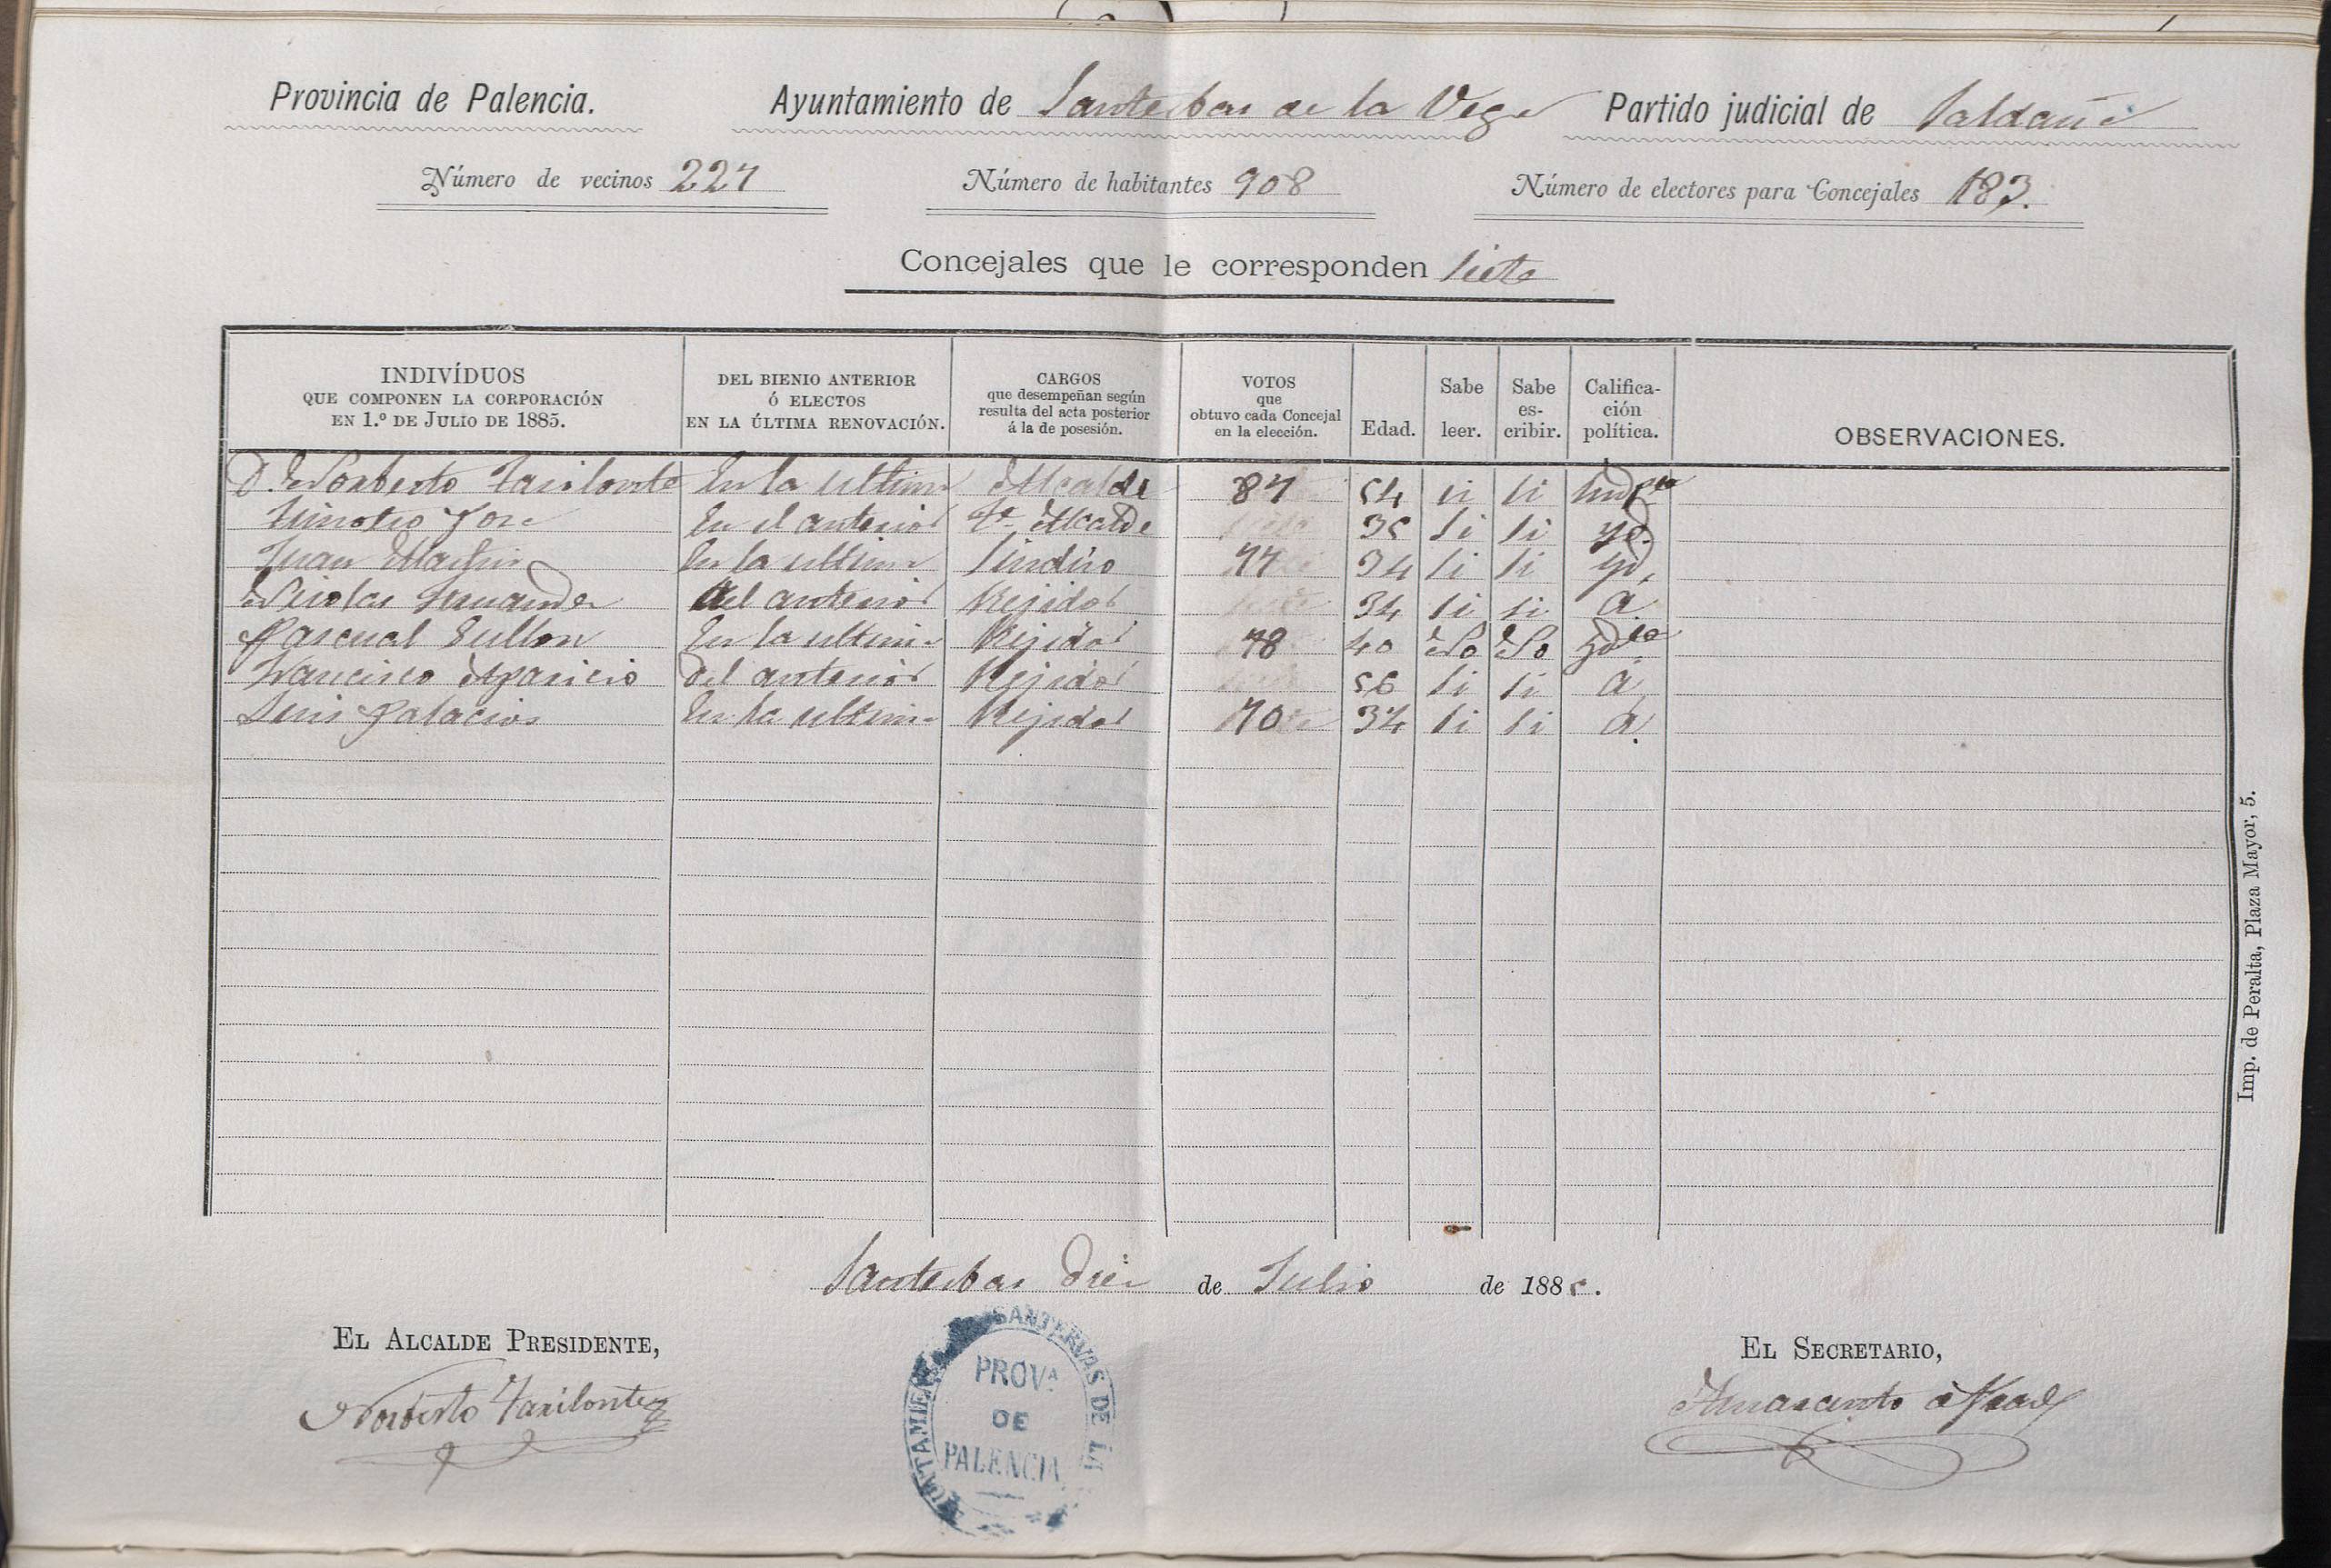 Provincia de Palencia. Ayuntamiento de Santerbas de la Vega Partido judicial de Saldaña
Número de vecinos 227 Número de habitantes 908 Número de electores para Concejales 183.
Concejales que le corresponden siete
INDIVÍDUOS QUE COMPONEN LA CORPORACIÓN EN 1.º DE JULIO DE 1885. DEL BIENIO ANTERIOR Ó ELECTOS EN LA ÚLTIMA RENOVACIÓN. CARGOS que desempeñan según resulta del acta posterior á la de posesión. VOTOS que obtuvo cada Concejal en la elección. Edad. Sabe leer. Sabe es-cribir. Califica-ción política. OBSERVACIONES.
D. Norberto Tarilonte En la ultima Alcalde 87 54 si si
Timoteo Jose En el anterior Te Alcalde 35 si si yd.
Juan Martin En la ultima Sindico 77 34 si si yd.
Nicolas Fernandez del anterior Rejidor 34 si si
Pascual Gullon En la ultima Rejidor 78 40 No No
Francisco Aparicio del anterior Rejidor 56 si si
Luis Palacios En la ultima Rejidor 70 34 si si
Santerbas diez de Julio de 1885.
EL ALCALDE PRESIDENTE, EL SECRETARIO,
Norberto Tarilonte
AYUNTAMIENTO SANTERVAS DE LA
PROVA
DE
PALENCIA
Imp. de Peralta, Plaza Mayor, 5.